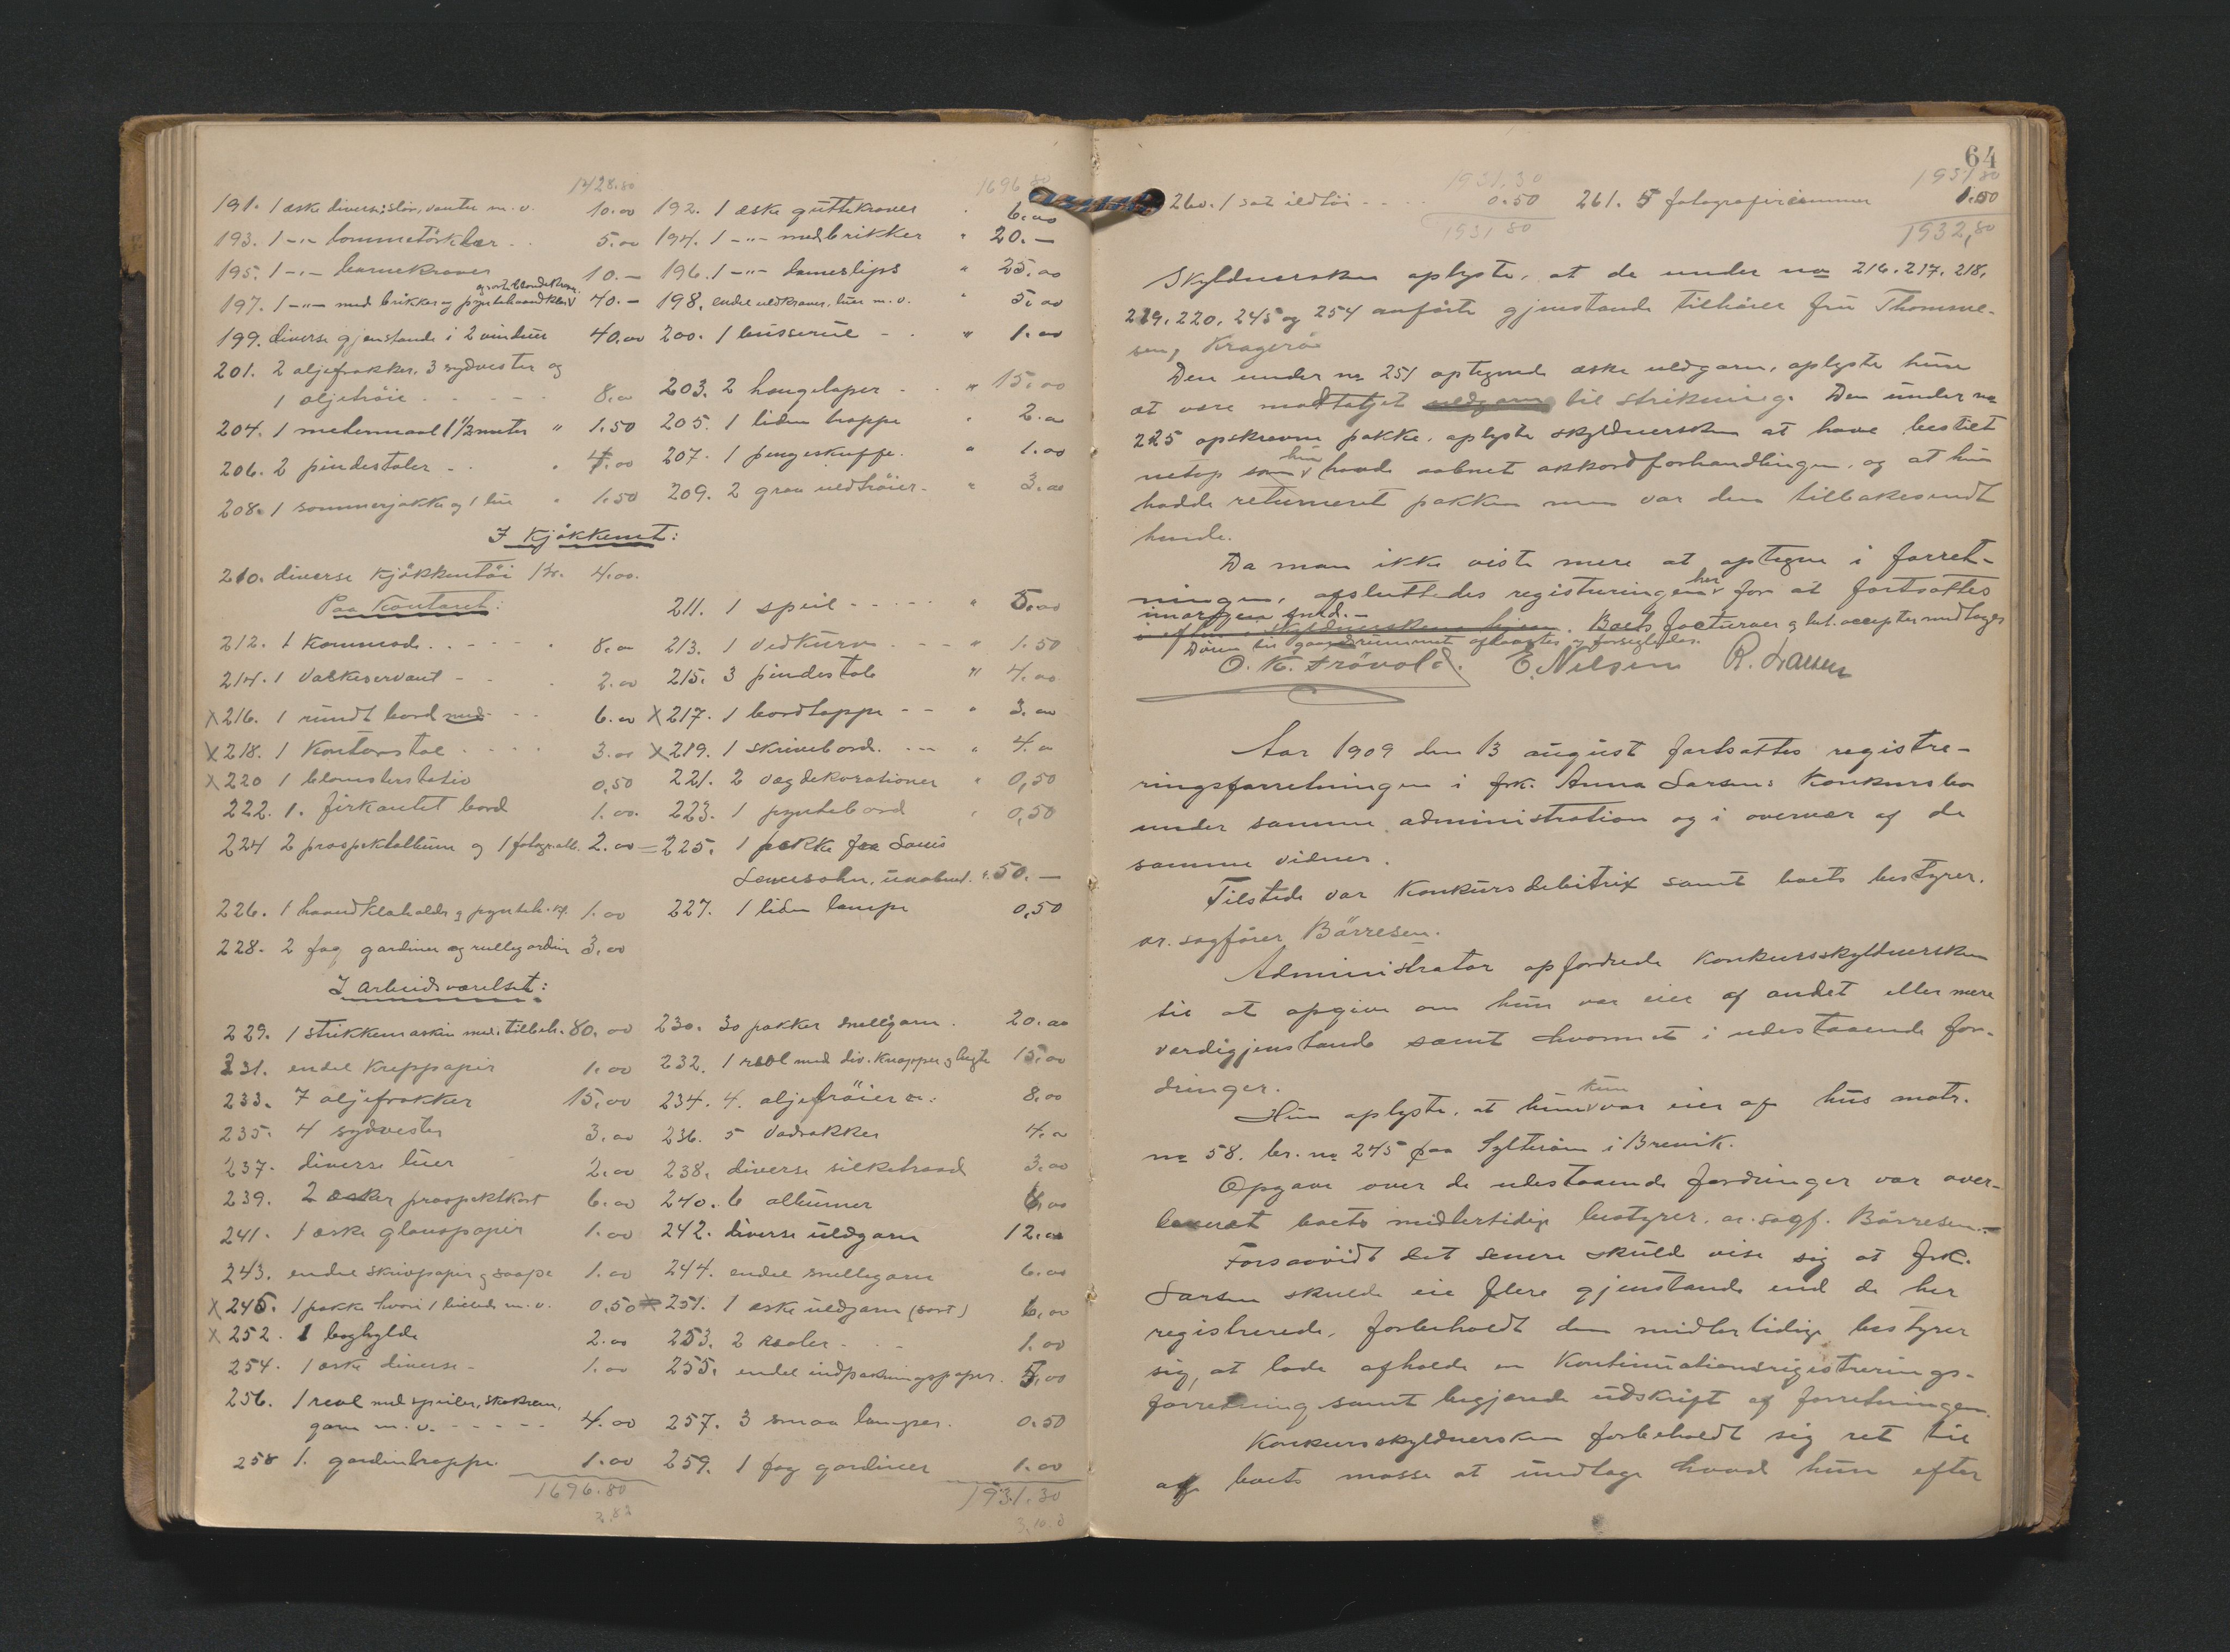 1428.80 1696.80
191. 1 æske diverse slör, vanter m.v. 10.00 192. 1 æske guttekraver 6.00
193. 1 -"- lommetörklær 5.00 194. 1 -"- med brikker " 20.-
195. 1 -"- barnekraver 10.- 196. 1 -"- dameslips " 25.00
197. 1 -"- med brikker og pyntehaandklær 40.- 198. endel uldkraver, luer m.v. " 5.00
199. diverse gjenstande i 2 vinduer 40.00 200. 1 busserul " 1.00
201. 2 oljefrakker, 3 sydvester og
1 oljetröie 8.00 203. 2 hengelaper " 15.00
204. 1 metermaal 1 1/2 meter " 1.50 205. 1 liden trappe " 2.00
206. 2 pindestoler 4.00 207. 1 pengeskuffe " 1.00
208. 1 sommerjakke og 1 lue " 1.50 209. 2 graa uldtröier " 3.00
I Kjökkenet:
210. diverse Kjökkentöi Kr. 4.00.
Paa Kontoret: 211. 1 speil " 5.00
212. 1 Kommode 8.00 213. 1 Vedkurv " 1.50
214. 1 Vaskeservant 2.00 215. 3 pindestole " 4.00
X 216. 1 rundt bord med 6.00 X 217. 1 bordteppe " 3.00
X 218. 1 Kontorstol 3.00 X 219. 1 skrivebord " 4.00
X 220 1 blomsterstativ 0,50 221. 2 vægdekorationer " 0,50
222. 1. firkantet bord 1.00. 223. 1 pyntebord 0,50
224 2 prospektalbum og 1 fotogr.alb. 2.00 = 225. 1 pakke fra Louis
Levesohn, uaabnet. 50.-
226. 1 haandklæholder og pynteh.kl. 1.00 227. 1 liden lampe 0,50
228. 2 fag gardiner og rullegardin 3.00
I arbeidsværelset:
229. 1 strikkemaskin med tilbeh. 80.00 230. 30 pakker snellgarn. 20.00
231. endel Kreppapir 1.00 232. 1 reol med div. Knapper og lugte 15.00
233. 7 oljefrakker 15.00 234. 4. oljetröier 8.00
235. 4 sydvester 3.00 236. 5 Vadsakker 4.00
237. diverse luer 2.00 238. diverse silkebaand 3.00
239. 2 æsker prospektkort 6.00 240. 6 albumer 6.00
241. 1 æske glanspapir 1.00 242. diverse uldgarn 12.00
243. endel skrivpapir og saape 1.00 244. endel snellegarn 6.00
X 245. 1 pakke hvori 1 billede m.v. 0,50 251. 1 æske uldgarn (sort) 6.00
X 252. 1 boghylde 2.00 253. 2 reoler 1.00
254. 1 æske diverse 1.00 255. endel indpakningspapir. 5.00
256. 1 reol med speiler, skokrem,
garn m.v. 4.00 257. 3 smaa lamper. 0.50
258 1. gardintrappe. 1.00 259. 1 fag gardiner 1.00
1696.80 1931.30
64
1931.30 1931 80
260. 1 sæt ildtöi 0.50 261. 5 fotografirammer 1.00
1931 80 1932,80
Skyldnersken oplyste, at de under no 216. 217. 218.
219. 220. 245 og 254 anförte gjenstande tilhörer fru Thomme-
sen, Kragerö
Den under no 251 optegnede æske uldgarn, oplyste hun
at være modtatget uldgarn til strikning. Den under no
225 opskrevne pakke, oplyste skyldnersken at have bestilt
netop som hun havde aabnet akkordforhandlingen, og at hun
hadde returneret pakken men var den tilbakesendt
hende.
Da man ikke viste mere at optegne i forret-
ningen, afsluttedes registreringen her for at fortsættes
imorgen
Boets facturaer og bet. accepter medtages
Dören til gaardsrummet aflaastes og forsegledes.
O. K. Trövold. E. Nilsen R. Larsen
Aar 1909 den 13 august fortsattes registre-
ringsforretningen i frk. Anna Larsens Konkursbo
under samme administration og i overvær af de
samme vidner.
Tilstede var Konkursdebitrix samt boets bestyrer.
or. sagförer Börresen.
Administrator opfordrede Konkursskyldnersken
til at opgive om hun var eier af andet eller mere
værdigjenstande samt hvormet i udestaaende for-
dringer.
Hun oplyste, at hun kun var eier af hus matr.
no 58. br. no 245 paa Sylteröen i Brevik.
Opgave over de udestaaende fordringer var over-
leveret boets midlertidige bestyrer. or. sagf. Börresen.-
Forsaavidt det senere skulde vise sig at frk.
Larsen skulde eie flere gjenstande end de her
registrerede, forbeholdt den midlertidige bestyrer
sig, at lade afholde en Kontinuationsregistrerings-
forretning samt begjærede udskrift af forretningen.
Konkursskyldnersken forbeholdt sig ret til
af boets masse at undtage hvad hun efter